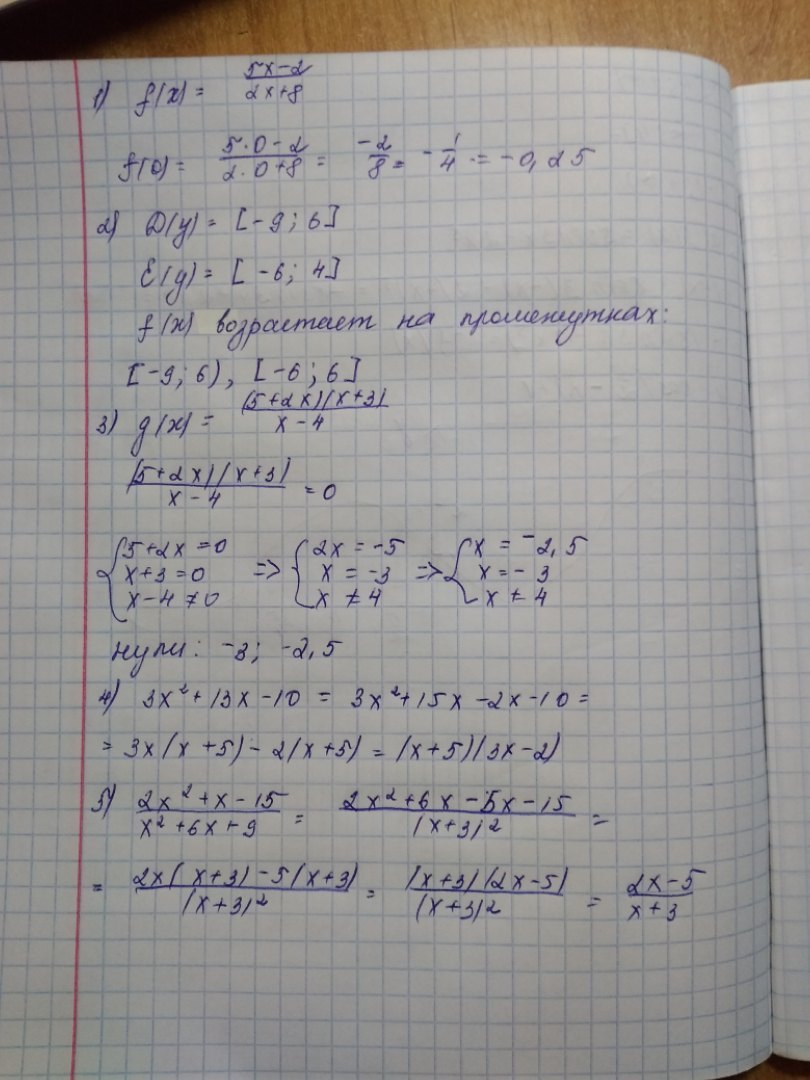 1) f(x) = (5x-2)/(2x+8)
f(0) = (5·0-2)/(2·0+8) = -2/8 = -1/4 = -0,25
2) D(y) = [-9; 6]
E(y) = [-6; 4]
f(x) возрастает на промежутках:
[-9; 6), [-6; 6]
3) g(x) = ((5+2x)(x+3))/(x-4)
((5+2x)(x+3))/(x-4) = 0
{5+2x=0 {2x=-5 {x=-2,5
{x+3=0 => {x=-3 => {x=-3
{x-4≠0 {x≠4 {x≠4
нули: -3; -2,5
4) 3x²+13x-10 = 3x²+15x-2x-10 =
= 3x(x+5)-2(x+5) = (x+5)(3x-2)
5) (2x²+x-15)/(x²+6x+9) = (2x²+6x-5x-15)/(x+3)² =
= (2x(x+3)-5(x+3))/(x+3)² = ((x+3)(2x-5))/(x+3)² = (2x-5)/(x+3)